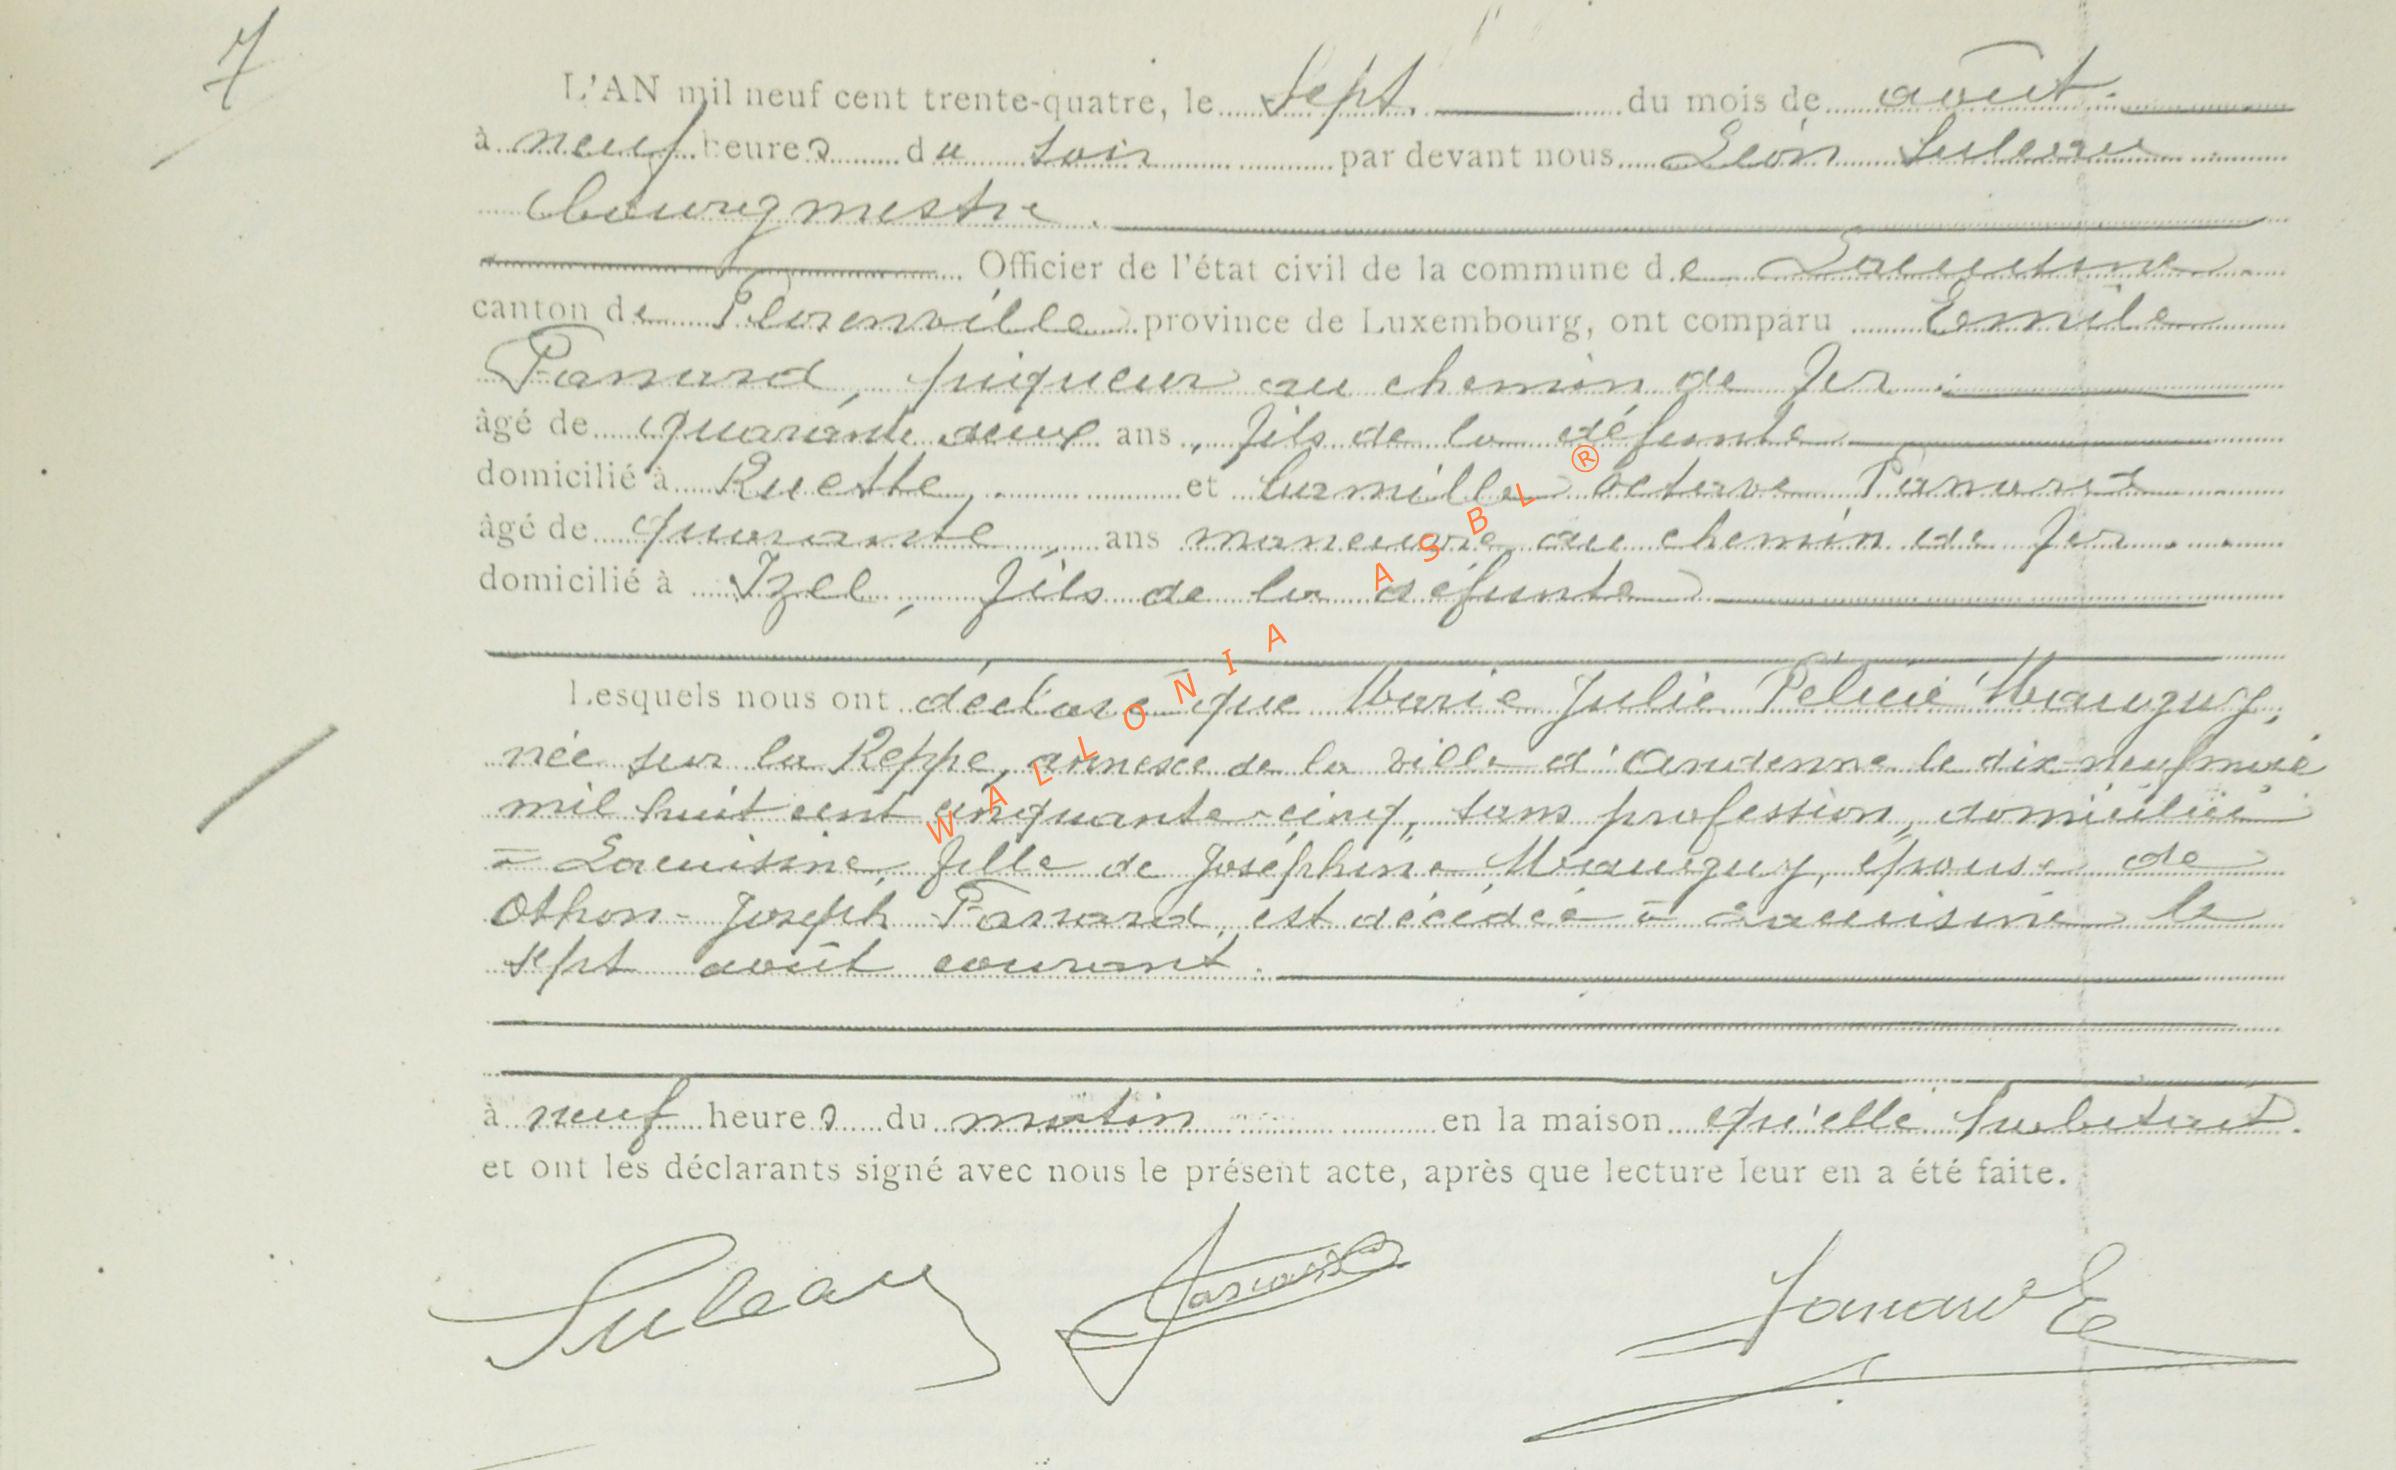 7
L'AN mil neuf cent trente-quatre, le sept. du mois de août.
à neuf heures du soir par devant nous Léon Suleau
bourgmestre.
Officier de l'état civil de la commune de Lacuisine
canton de Florenville province de Luxembourg, ont comparu Emile
Fanard, piqueur au chemin de fer.
âgé de quarante deux ans, fils de la défunte
domicilié à Ruette, et Camille Octave Fanard
âgé de quarante ans manœuvre au chemin de fer
domicilié à Izel, fils de la défunte
Lesquels nous ont déclaré que Marie Julie Mauguy,
née sur la Reppe, annexe de la ville d'Andenne le dix-neuf
mil huit cent cinquante-cinq, sans profession, domiciliée
à Lacuisine, fille de Joséphine Mauguy, épouse de
Othon-Joseph Fanard, est décédée à Lacuisine le
sept août courant.
à neuf heures du matin en la maison qu'elle habitait.
et ont les déclarants signé avec nous le présent acte, après que lecture leur en a été faite.
Suleau Fanard Fanard E
WALLONIA ASBL ®